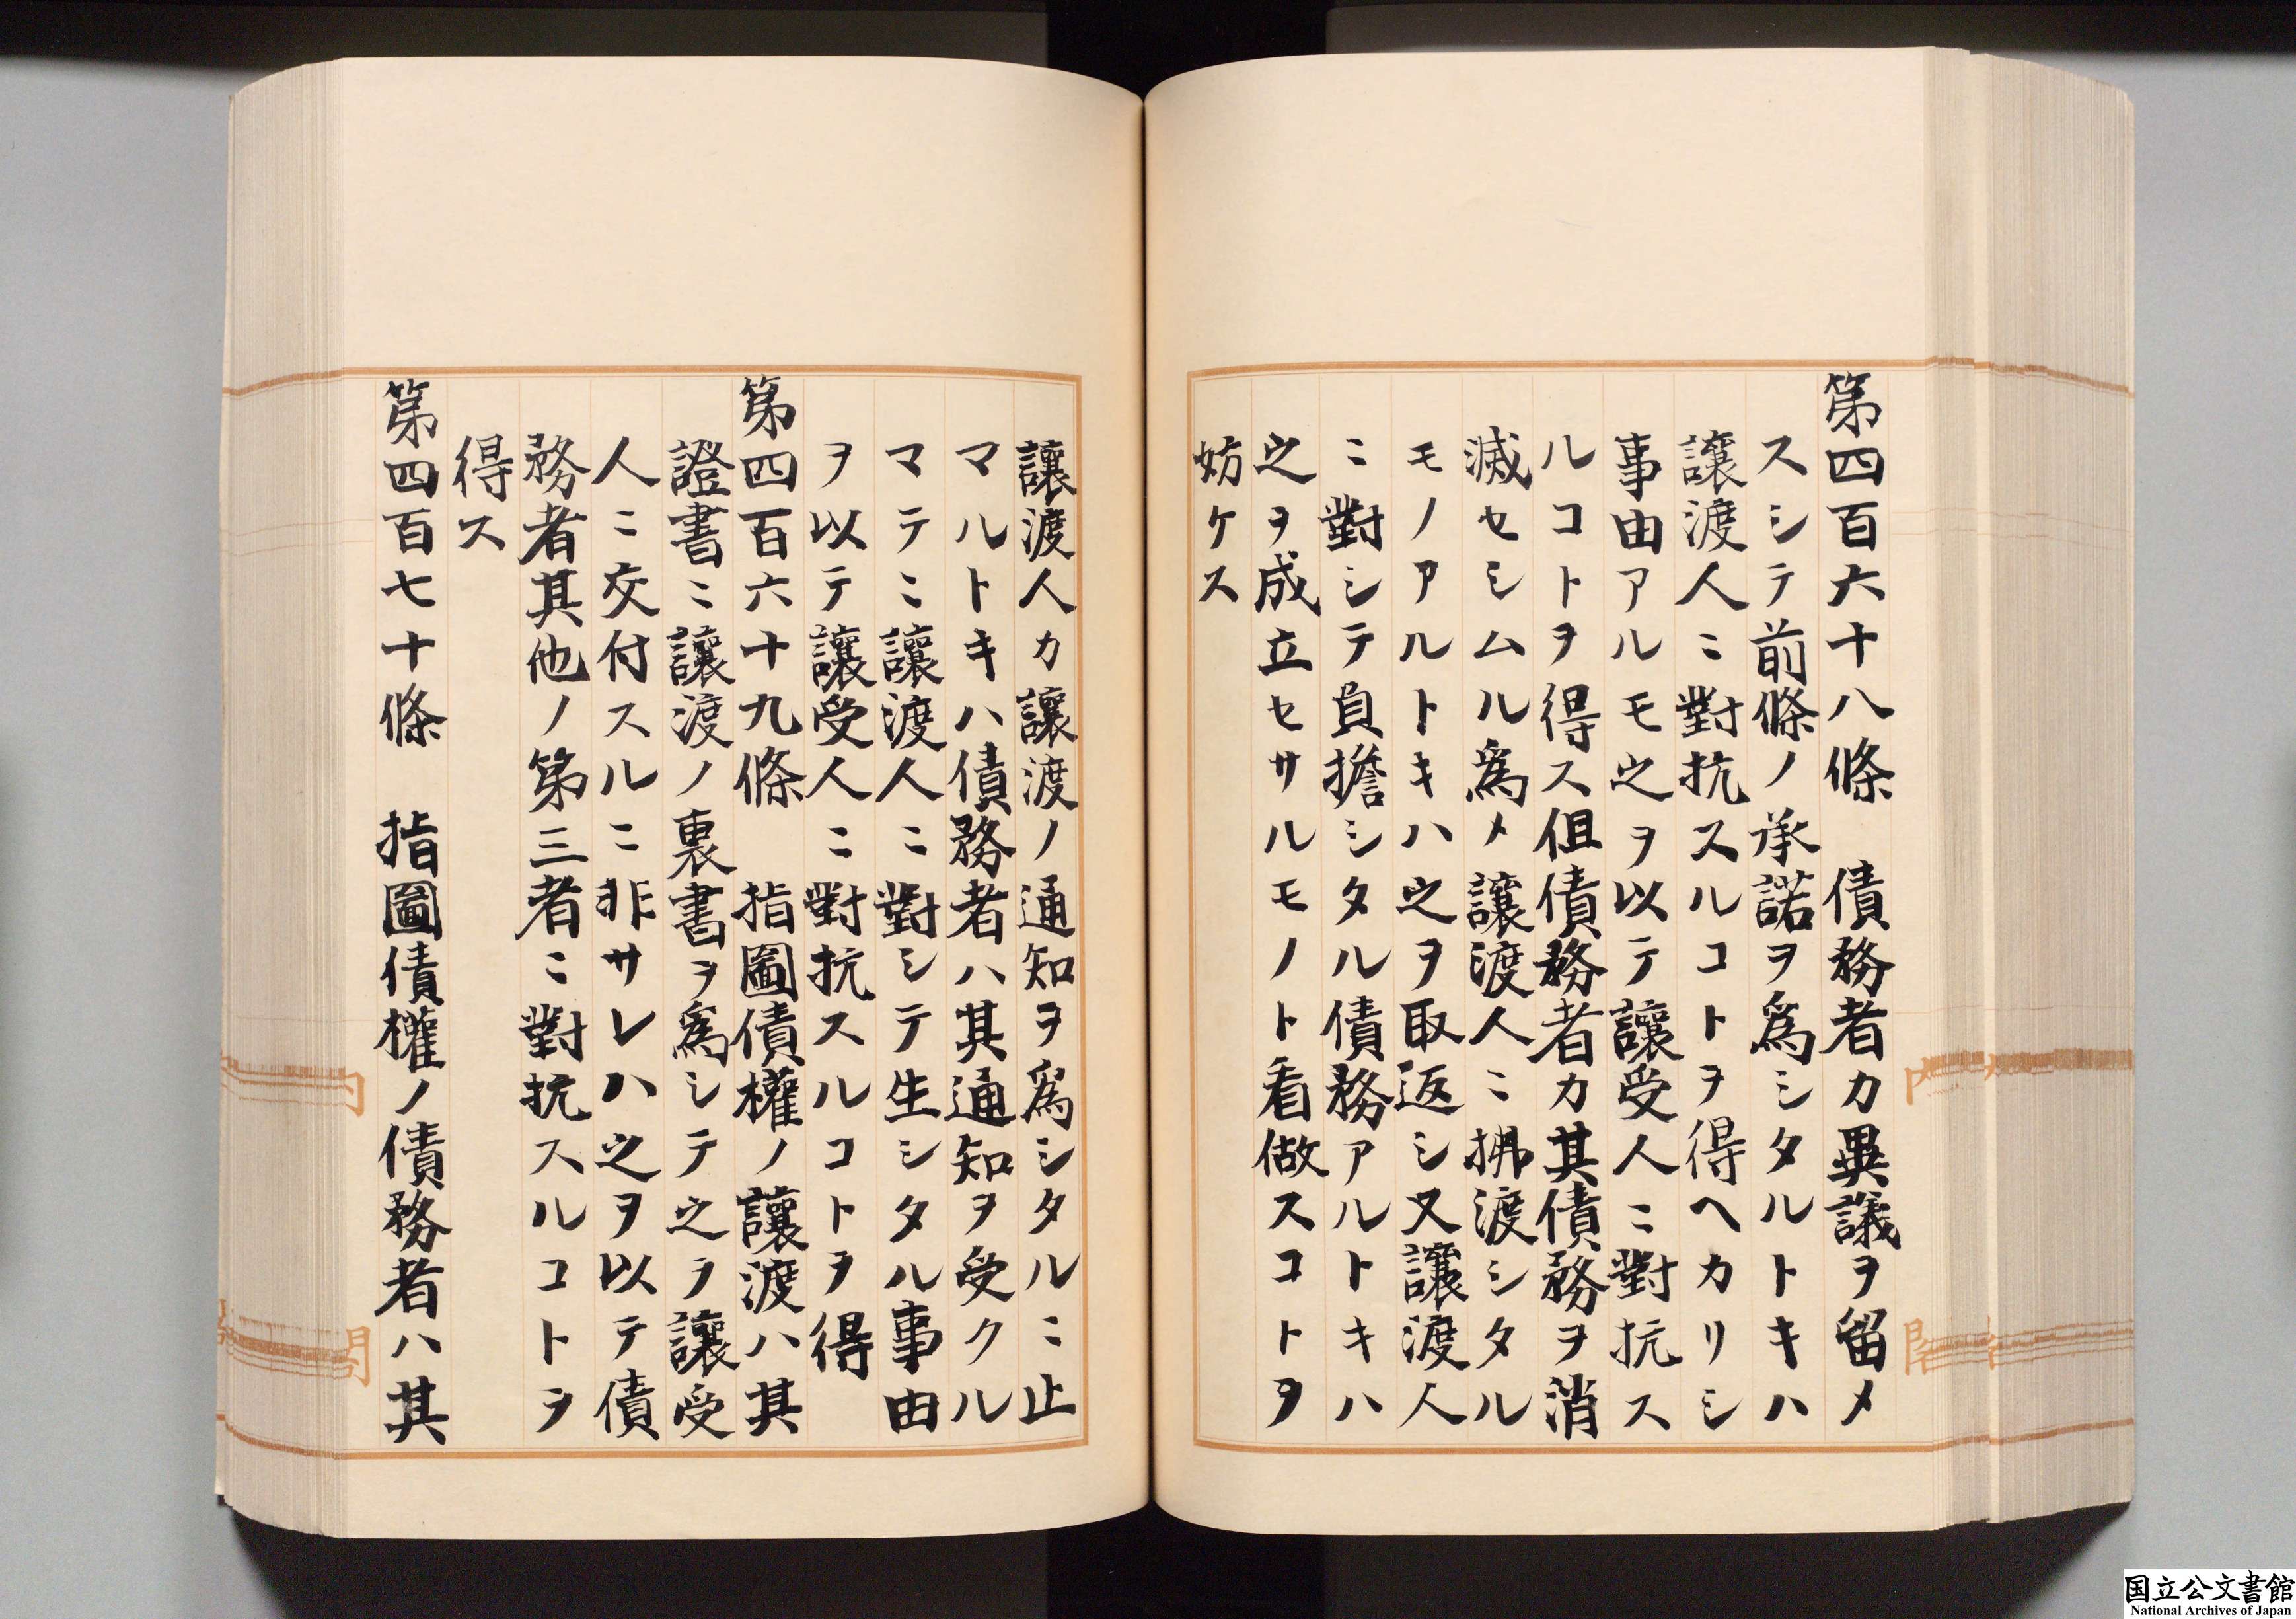 第四百六十八條　債務者カ異議ヲ留メ
スシテ前條ノ承諾ヲ爲シタルトキハ
讓渡人ニ對抗スルコトヲ得ヘカリシ
事由アルモ之ヲ以テ讓受人ニ對抗ス
ルコトヲ得ス但債務者カ其債務ヲ消
滅セシムル爲メ讓渡人ニ拂渡シタル
モノアルトキハ之ヲ取返シ又讓渡人
ニ對シテ負擔シタル債務アルトキハ
之ヲ成立セサルモノト看做スコトヲ
妨ケス
讓渡人カ讓渡ノ通知ヲ爲シタルニ止
マルトキハ債務者ハ其通知ヲ受クル
マテニ讓渡人ニ對シテ生シタル事由
ヲ以テ讓受人ニ對抗スルコトヲ得
第四百六十九條　指圖債權ノ讓渡ハ其
證書ニ讓渡ノ裏書ヲ爲シテ之ヲ讓受
人ニ交付スルニ非サレハ之ヲ以テ債
務者其他ノ第三者ニ對抗スルコトヲ
得ス
第四百七十條　指圖債權ノ債務者ハ其
国立公文書館
National Archives of Japan